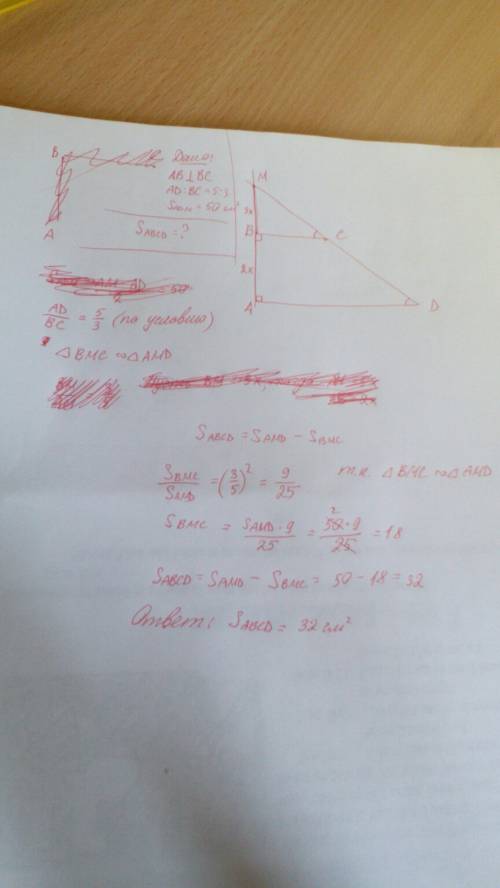 B
A
Дано:
AB⊥BC
AD:BC = 5:3
S_ADM = 50 см²
S_ABCD = ?
M
3x
B
C
2x
A
D
AD/BC = 5/3 (по условию)
△BMC ∾ △AMD
S_ABCD = S_AMD − S_BMC
S_BMC/S_AMD = (3/5)² = 9/25 т.к. △BMC ∾ △AMD
S_BMC = S_AMD · 9/25 = 50 · 9/25 = 18
2
S_ABCD = S_AMD − S_BMC = 50 − 18 = 32
Ответ: S_ABCD = 32 см²